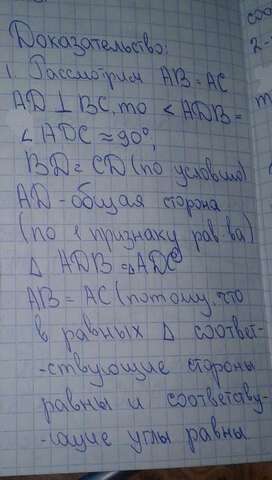 Доказательство:
1. Рассмотрим AB = AC
AD ⊥ BC, то < ADB =
∠ ADC = 90°,
BD = CD (по условию)
AD - общая сторона
(по 1 признаку рав-ва)
Δ ADB = ΔADC
AB = AC (потому что
в равных Δ соответ-
-ствующие стороны
равны и соответству-
-ющие углы равны
соо
2-